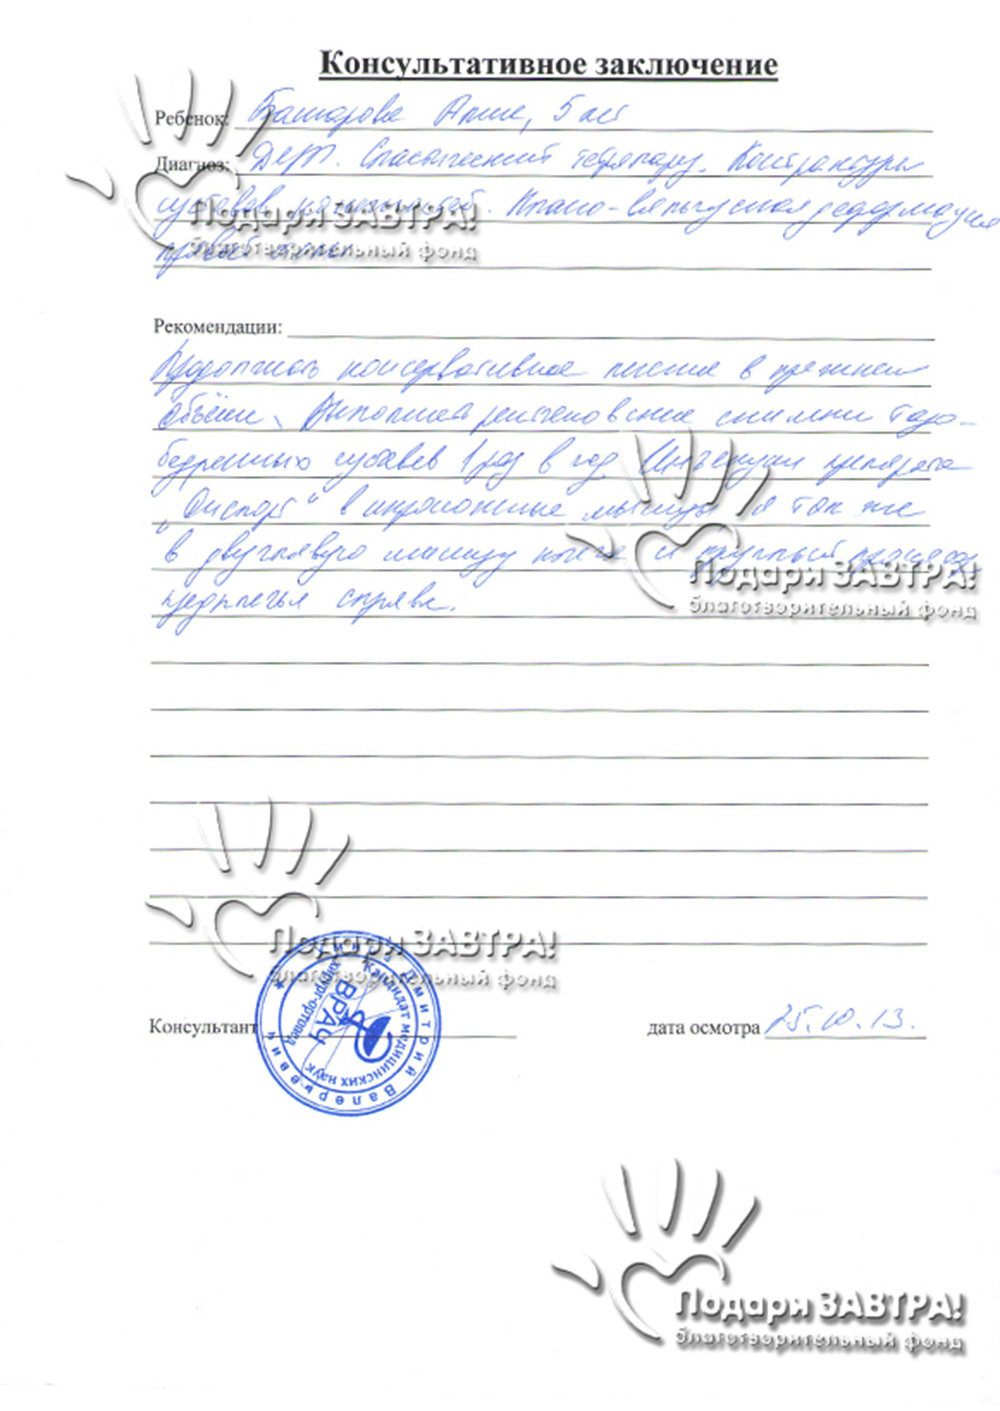 Консультативное заключение
Ребенок: Башарова Алина, 5 лет
Диагноз: ДЦП. Спастический тетрапарез. Контрактуры
суставов конечностей. Плано-вальгусная деформация
Подари ЗАВТРА!
правой стопы
благотворительный фонд
Рекомендации:
Продолжать консервативное лечение в прежнем
объёме. Выполнять рентгеновские снимки тазо-
бедренных суставов 1 раз в год. Инъекции препарата
„Диспорт“ в икроножные мышцы, а так же
в двуглавую мышцу плеча и круглый пронатор
Подари ЗАВТРА!
предплечья справа.
благотворительный фонд
Подари ЗАВТРА!
благотворительный фонд
Дмитрий Валерьевич
Кандидат медицинских наук
хирург-ортопед
ВРАЧ
Консультант
дата осмотра 25.10.13.
Подари ЗАВТРА!
благотворительный фонд